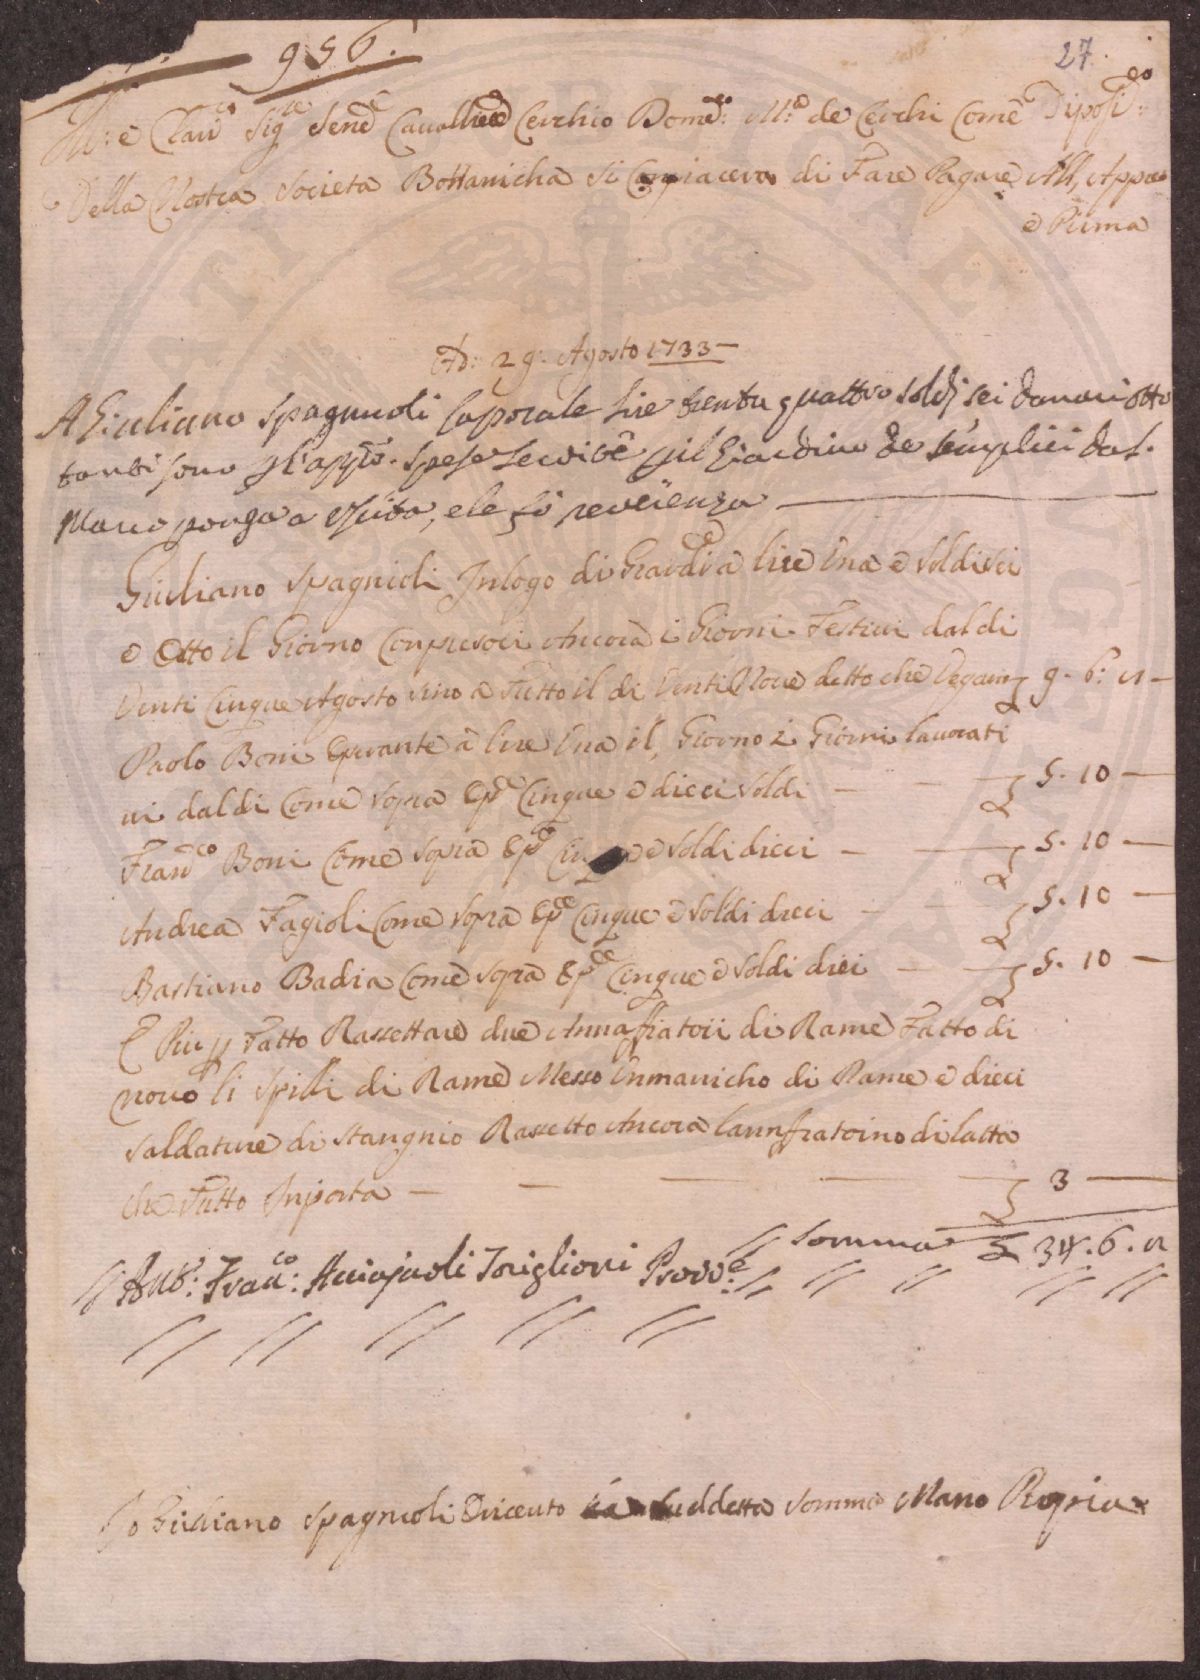 956.
27
Ill: e Clari.mo Sig.re Sen.e Cavalliere Cerchio Dome.co M.a de Cerchi Come Diposi.o:
Della Nostra Societa Bottanicha Si Conpiacera di Fare Pagare All, Appie
e Prima
Ad: 29: Agosto 1733 —
A Giuliano Spagnuoli Caporale lire trenta quattro soldj sei danari otto
tanti sono p l'app.te spese servite p il Giardino de semplici dal
Marco ponga a Uscita, e le fò reverenza
Giuliano Spagnioli In logo di Guardia lire Una e Soldi sei
e Otto il Giorno Conpresoci Ancora i Giorni Festivi dal di
Venti Cinque Agosto Sino a Tutto il di Venti Nove detto che Vegain £ 9. 6: 8 —
Paolo Boni Operante a lire Una il, Giorno i Giorni lavorati
vi dal di Come Sopra £ Cinque e dieci Soldi — £ 5. 10 —
Fran.co Boni Come Sopra e Soldi dieci — £ 5. 10 —
Andrea Fagioli Come Sopra Cinque e Soldi dieci — £ 5. 10 —
Bastiano Badia Come Sopra Cinque e Soldi dieci — £ 5. 10 —
E Piu p Fatto Rassettare due Annaffiatoii di Rame Fatto di
novo li Spilli di Rame Messo Unmanicho di Rame e dieci
Saldature di Stangnio Rassetto Ancora lannfiatoino di latta
che Tutto Inporta — £ 3 —
Somma £ 34. 6. 8
And: Fran.co: Acciajuoli Toriglioni Provv.e
Io Giuliano Spagnioli O riceuto la Suddetta Somma Mano Propria